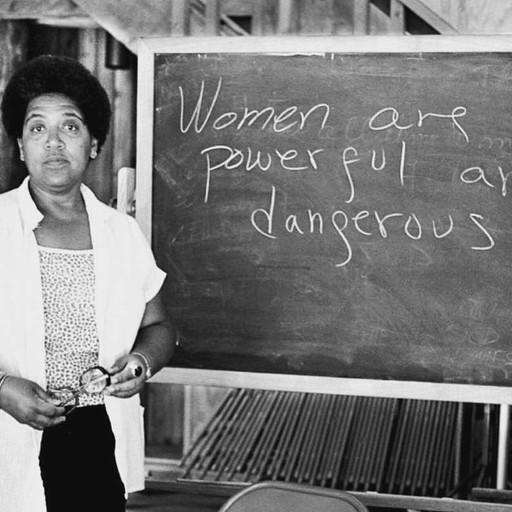 Women are
powerful an
dangerous